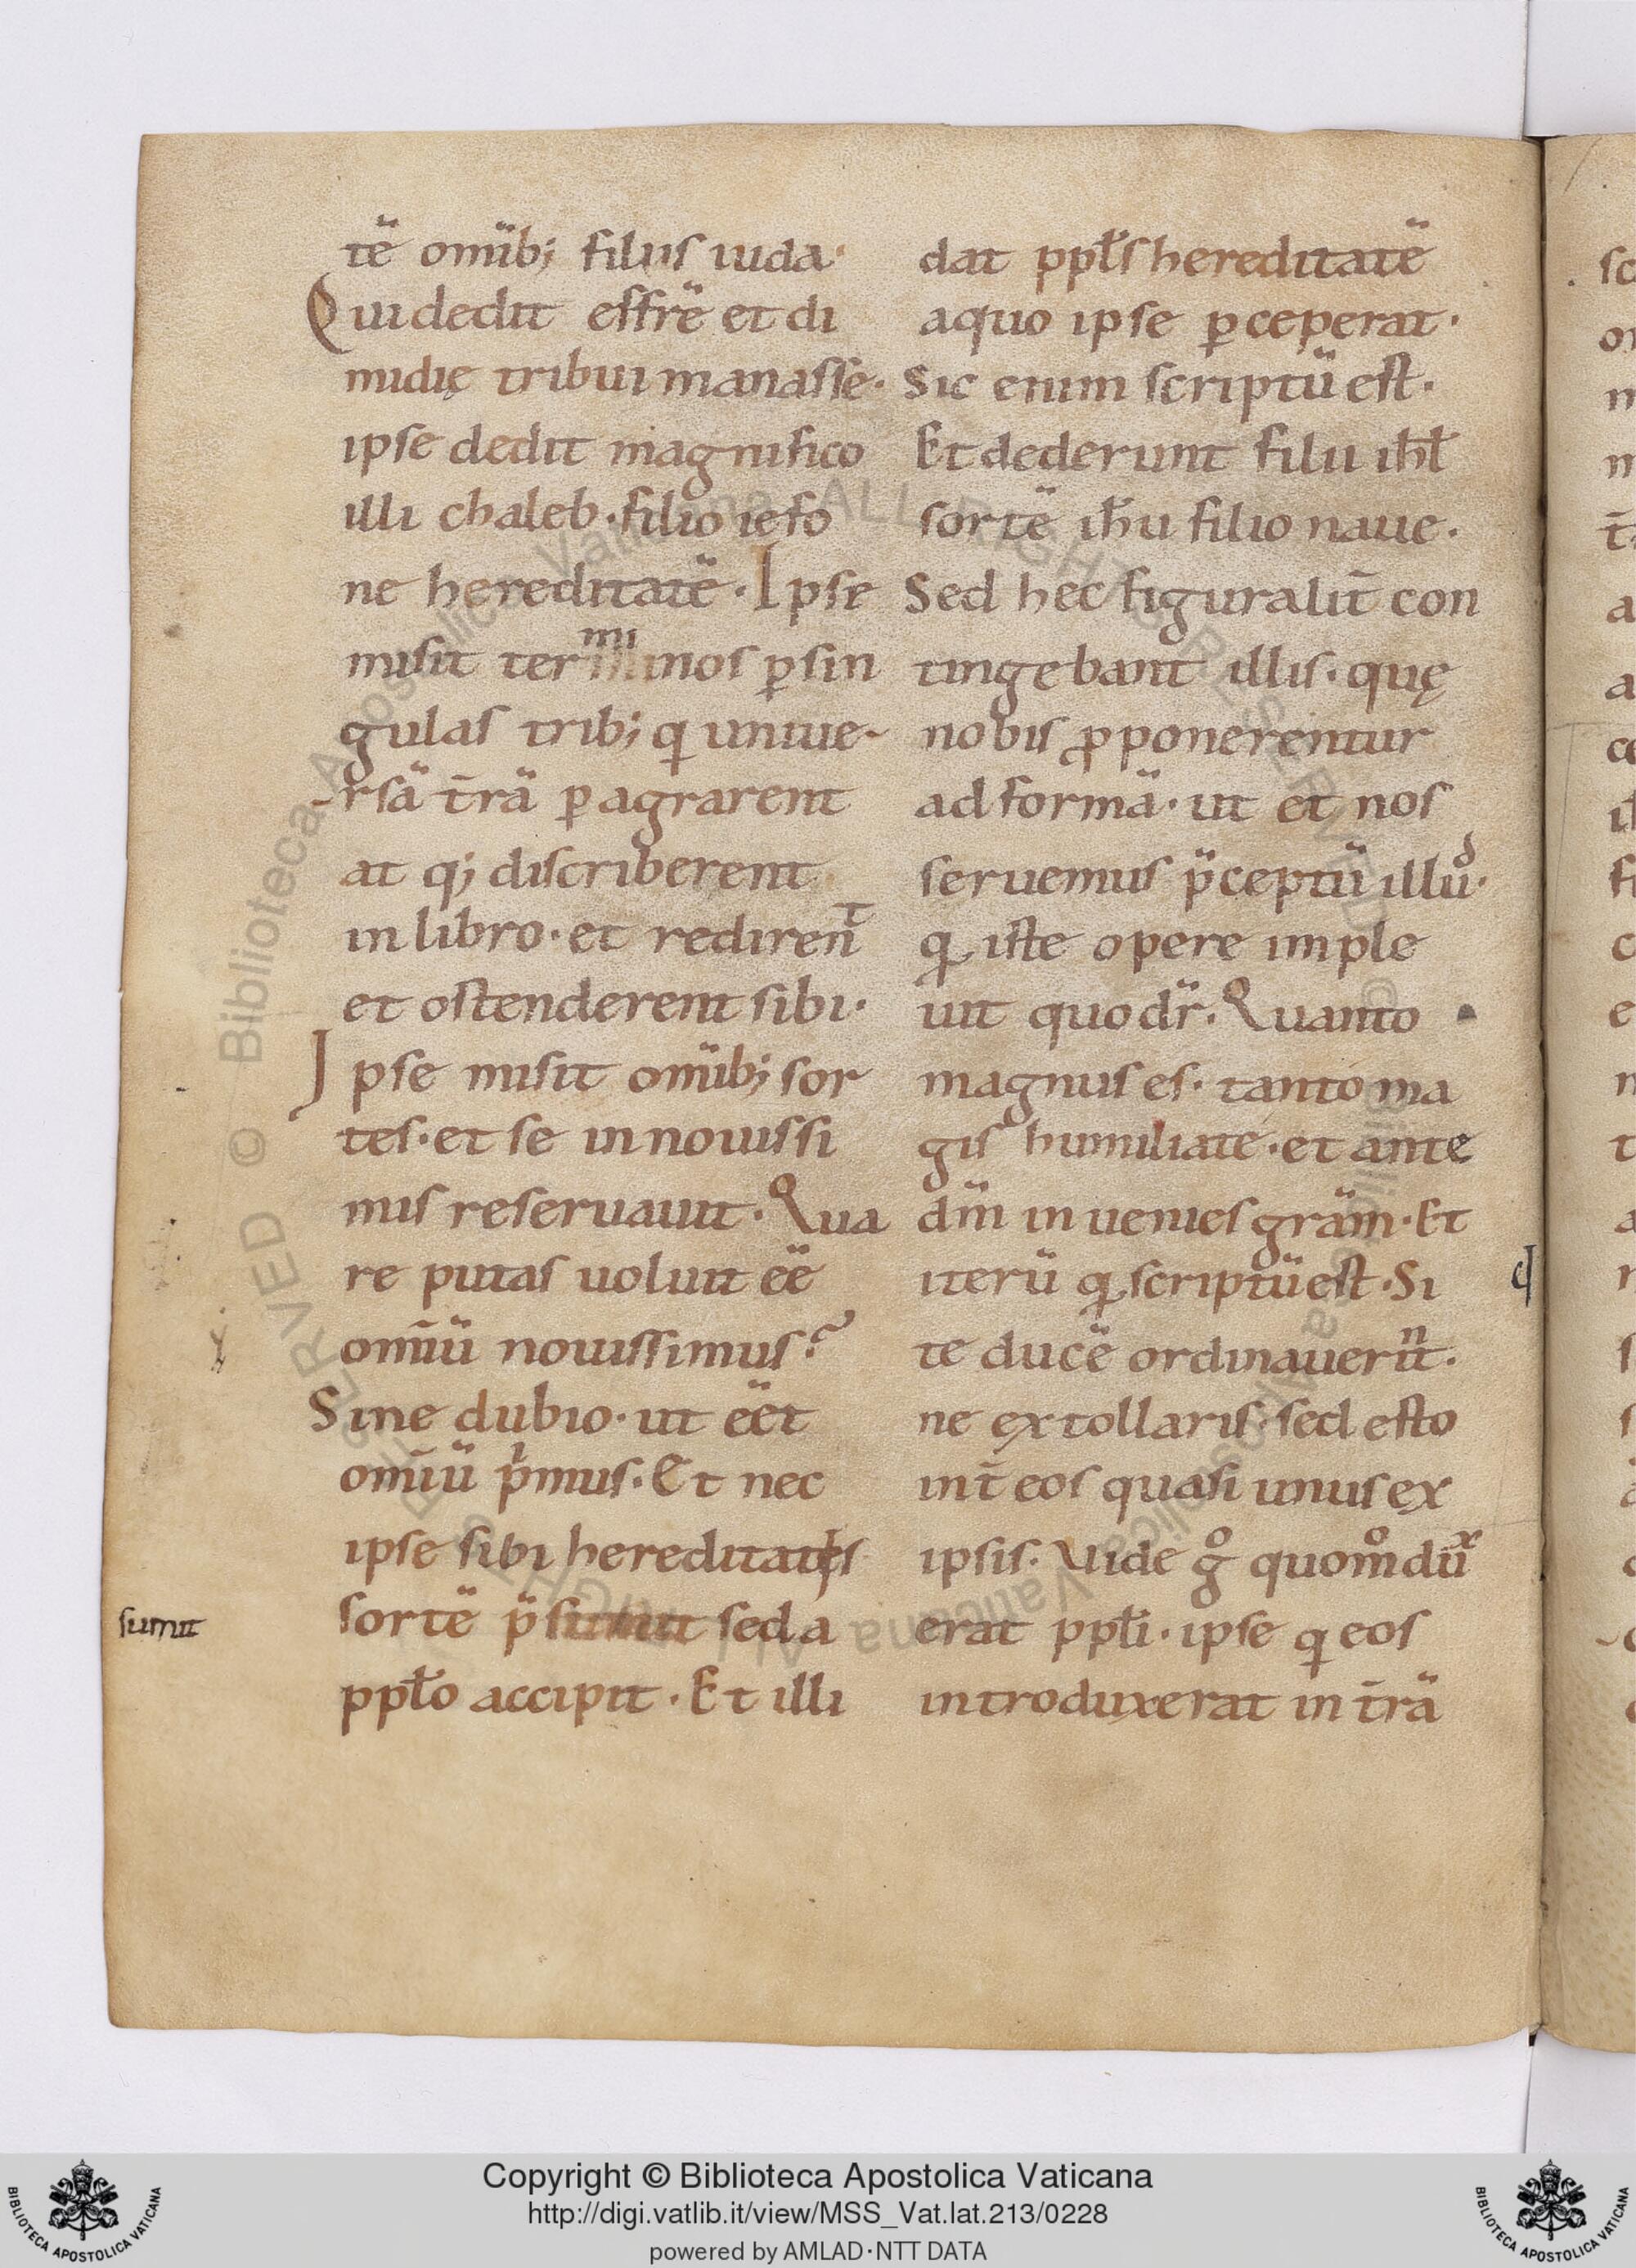 tē om̄ibꝫ filiis iuda·
Qui dedit effrē et di
midię tribui manasse·
ipse dedit magnifico
illi chaleb· filio iefo
ne hereditatē· Ipse
mi
misit terminos ꝑ sin
gulas tribꝫ q uniue-
-rsā t̄rā ꝑagrarent
atqꝫ discriberent
in libro· et redirent
et ostenderent sibi·
Ipse misit om̄ibꝫ sor
tes· et se in nouissi
mis reseruauit· Qua
re putas uoluit eē
om̄iū nouissimus?
Sine dubio· ut eēt
om̄iū pⁱmus· Et nec
ipse sibi hereditatis
sortē p̄sumit sed a
sumit
ppło accipit· Et illi
dat ppłs hereditatē
a quo ipse ꝑceperat·
Sic enim scriptū est·
Et dederunt filii ihł
sortē ihu filio naue·
Sed hec figuralit̄ con
tingebant illis· quę
nobis ꝓponerentur
ad formā· ut et nos
seruemus p̄ceptū illud·
q iste opere imple
uit quo dr̄· Quanto
magnus es· tanto ma
gis humiliate· et ante
dm̄ inuenies gram̄· Et
iterū q scriptū est· Si
te ducē ordinauerunt·
ne extollaris· sed esto
int̄ eos quasi unus ex
ipsis· Vide gͦ quomͦ dux
erat ppłi· ipse q eos
introduxerat in t̄rā
Copyright © Biblioteca Apostolica Vaticana
http://digi.vatlib.it/view/MSS_Vat.lat.213/0228
powered by AMLAD·NTT DATA
BIBLIOTECA APOSTOLICA VATICANA
BIBLIOTECA APOSTOLICA VATICANA